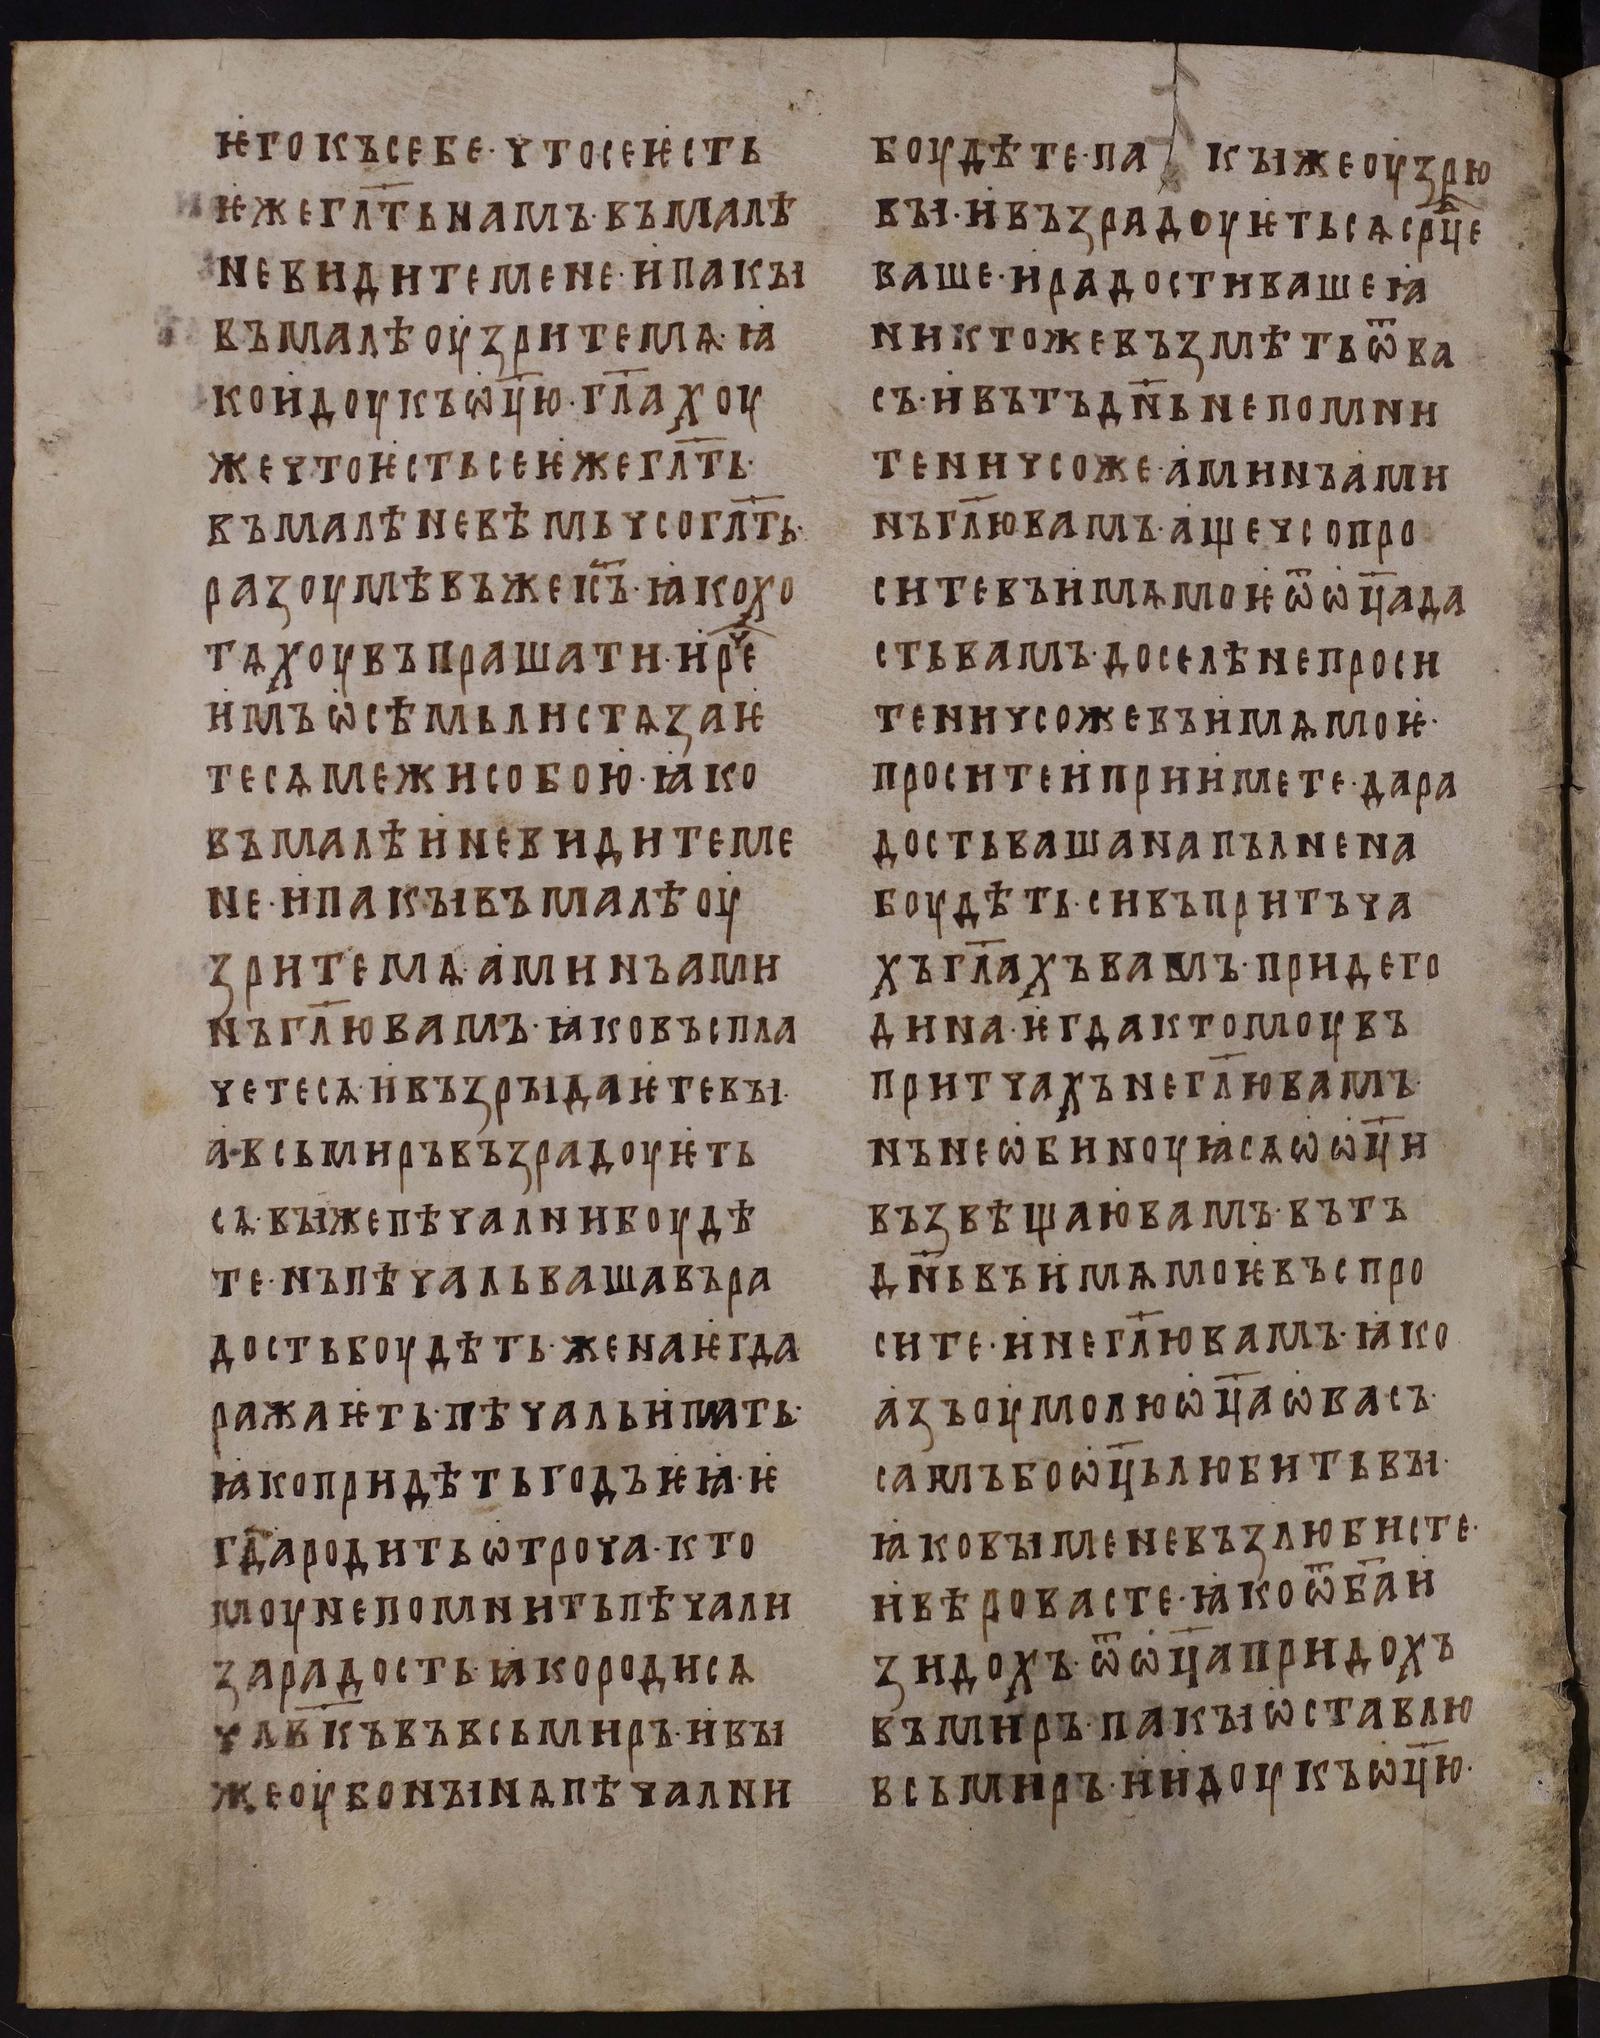 ѥгокъсебе·чтосеѥсть
ѥжегл҃тьнамъ·въмалѣ
невидитемене·ипакꙑ
въмалѣоузритемѧ·ꙗ
коидоукъѡц҃ю·гл҃ахоу
жечтоѥстьсеѥжегл҃ть·
въмалѣневѣмьчсогл҃ть·
разоумѣвъжеис҃ъ·ꙗкохо
тѧхоувъпрашати·ирⷱ҇е
имъѡсѣмьлистѧзаѥ
тесѧмежисобою·ꙗко
въмалѣиневидитеме
не·ипакꙑвъмалѣоу
зритемѧ·аминъами
нъгл҃ювамъ·ꙗковъспла
четесѧ·ивъзрꙑдаѥтевꙑ·
а·всьмиръвъзрадоуѥть
сѧ·вꙑжепѣчалнибоудѣ
те·нъпѣчальвашавъра
достьбоудѣть·женаѥгда
ражаѥть·пѣчальимать·
ꙗкопридѣтьгодъѥꙗ·ѥ
гдародитьѡтроча·кто
моунепомнитьпѣчали
зарадость·ꙗкородисѧ
члв҃къвъвсьмиръ·ивꙑ
жеоубонꙑнѧпѣчални
боудѣте·пакꙑжеоузрю
вꙑ·ивъзрадоуѥтьсѧср҃це
ваше·ирадостивашеꙗ
никтожевъзмѣтьѿва
съ·ивътъдн҃ьнепомни
теничсоже·аминъами
нъгл҃ювамъ·ащечсопро
ситевъимѧмоѥѿѡц҃ада
стьвамъ·доселѣнепроси
теничсожевъимѧмоѥ·
проситеипріимете·дара
достьвашанапълнена
боудѣть·сивъпритъча
хъгл҃ахъвамъ·придего
дина·ѥгдактомоувъ
притчахънегл҃ювамъ·
нънеѡбиноуꙗсѧѡѡц҃и
възвѣщаювамъ·вътъ
дн҃ьвъимѧмоѥвъспро
сите·инегл҃ювамъ·ꙗко
азъоумолюѡц҃аѡвасъ·
самъбоѡц҃ьлюбитьвꙑ·
ꙗковꙑменевъзлюбисте·
ивѣровасте·ꙗкоѿб҃аи
зидохъ·ѿѡц҃апридохъ
въмиръ·пакꙑѡставлю
всьмиръ·иидоукъѡц҃ю·